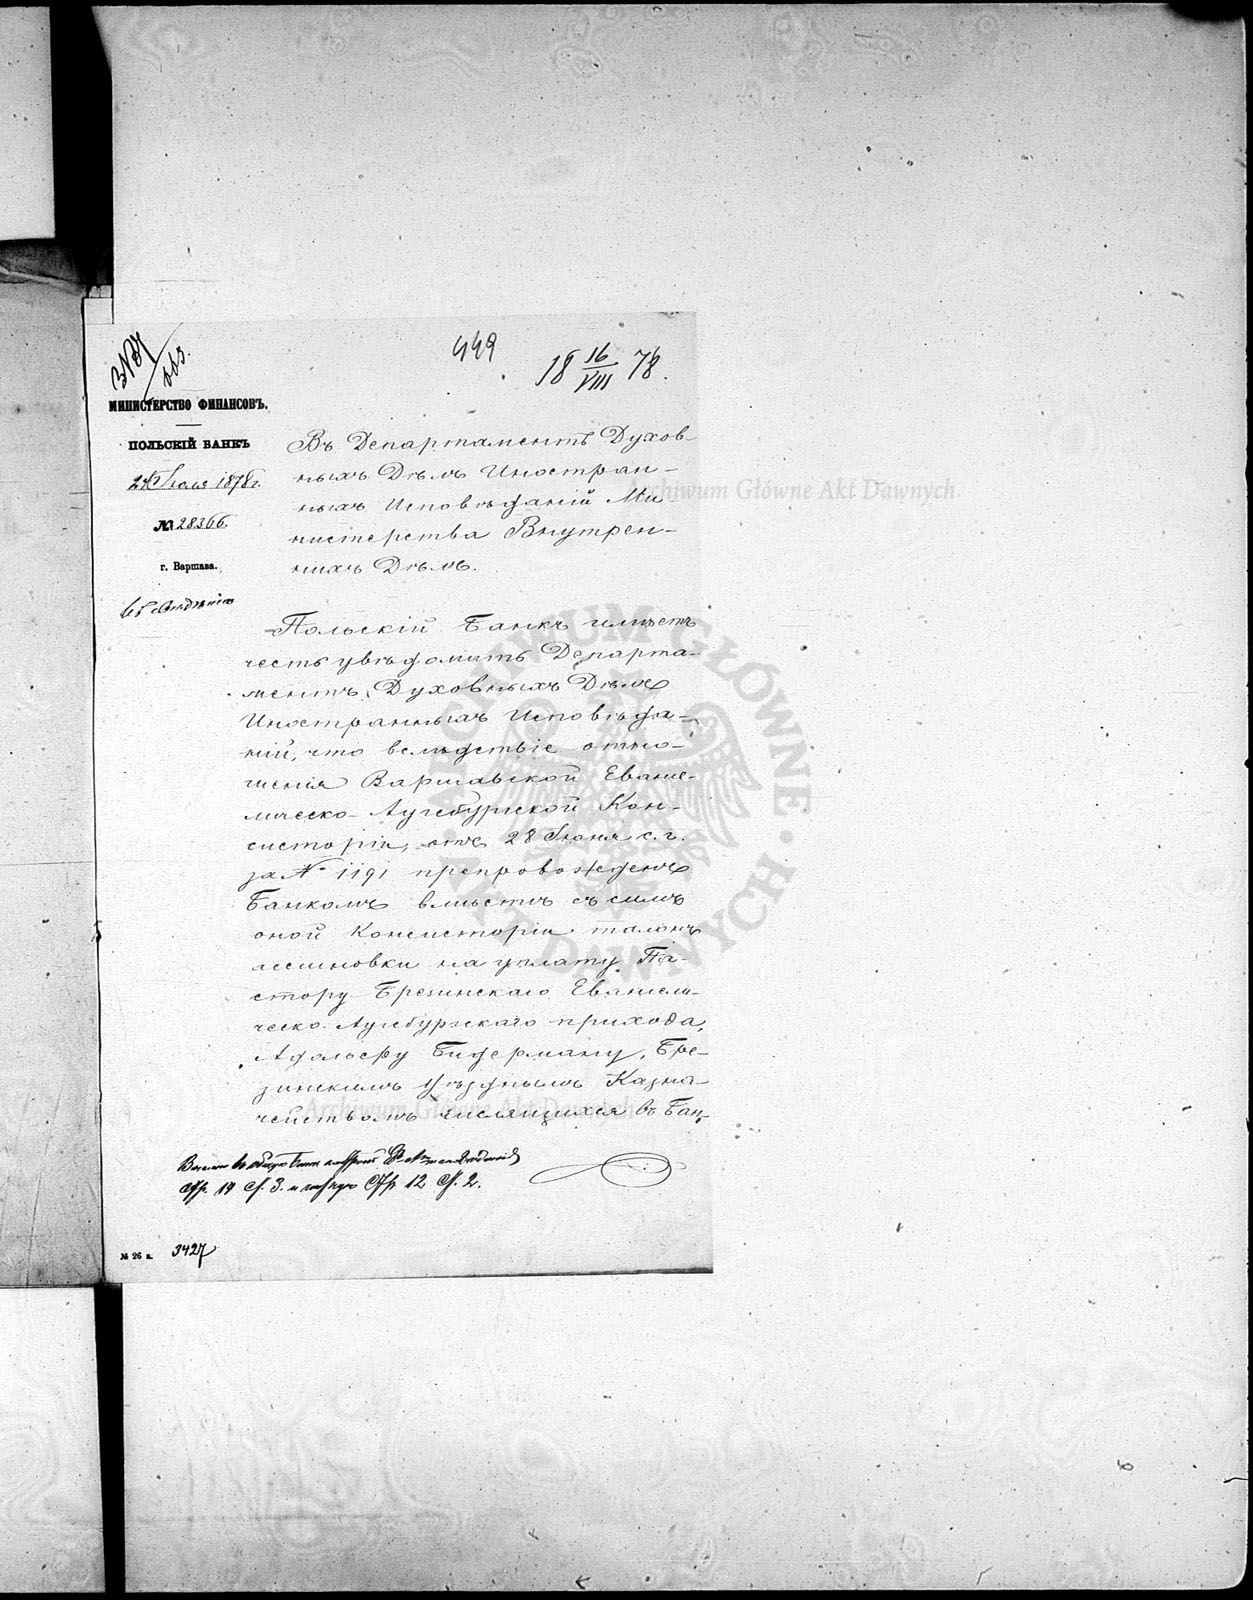 449
18 16/VIII 78.
МИНИСТЕРСТВО ФИНАНСОВЪ.
ПОЛЬСКІЙ БАНКЪ
24 Іюля 1878 г.
№ 28366.
г. Варшава.
Въ Департаментъ Духов-
ныхъ Дѣлъ Иностран-
ныхъ Исповѣданій Ми-
нистерства Внутрен-
нихъ Дѣлъ.
Польскій Банкъ имѣетъ
честь увѣдомить Департа-
ментъ Духовныхъ Дѣлъ
Иностранныхъ Исповѣда-
ній, что вслѣдствіе отно-
шенія Варшавской Еванге-
лическо-Аугсбургской Кон-
систоріи, отъ 28 Іюня с. г.
за № 1191 препровожденъ
Банкомъ вмѣстѣ съ симъ
оной Консисторіи талонъ
ассигновки на уплату Па-
стору Брезинскаго Евангели-
ческо-Аугсбургскаго прихода,
Адольфу Бидерману, Бре-
зинскимъ Уѣзднымъ Казна-
чействомъ числящихся въ Бан-
стр. 14 ст. 3. и стр 12 ст. 2.
№ 26 а. 3427
Archiwum Główne Akt Dawnych
ARCHIWUM GŁÓWNE · AKT DAWNYCH ·
Archiwum Główne Akt Dawnych